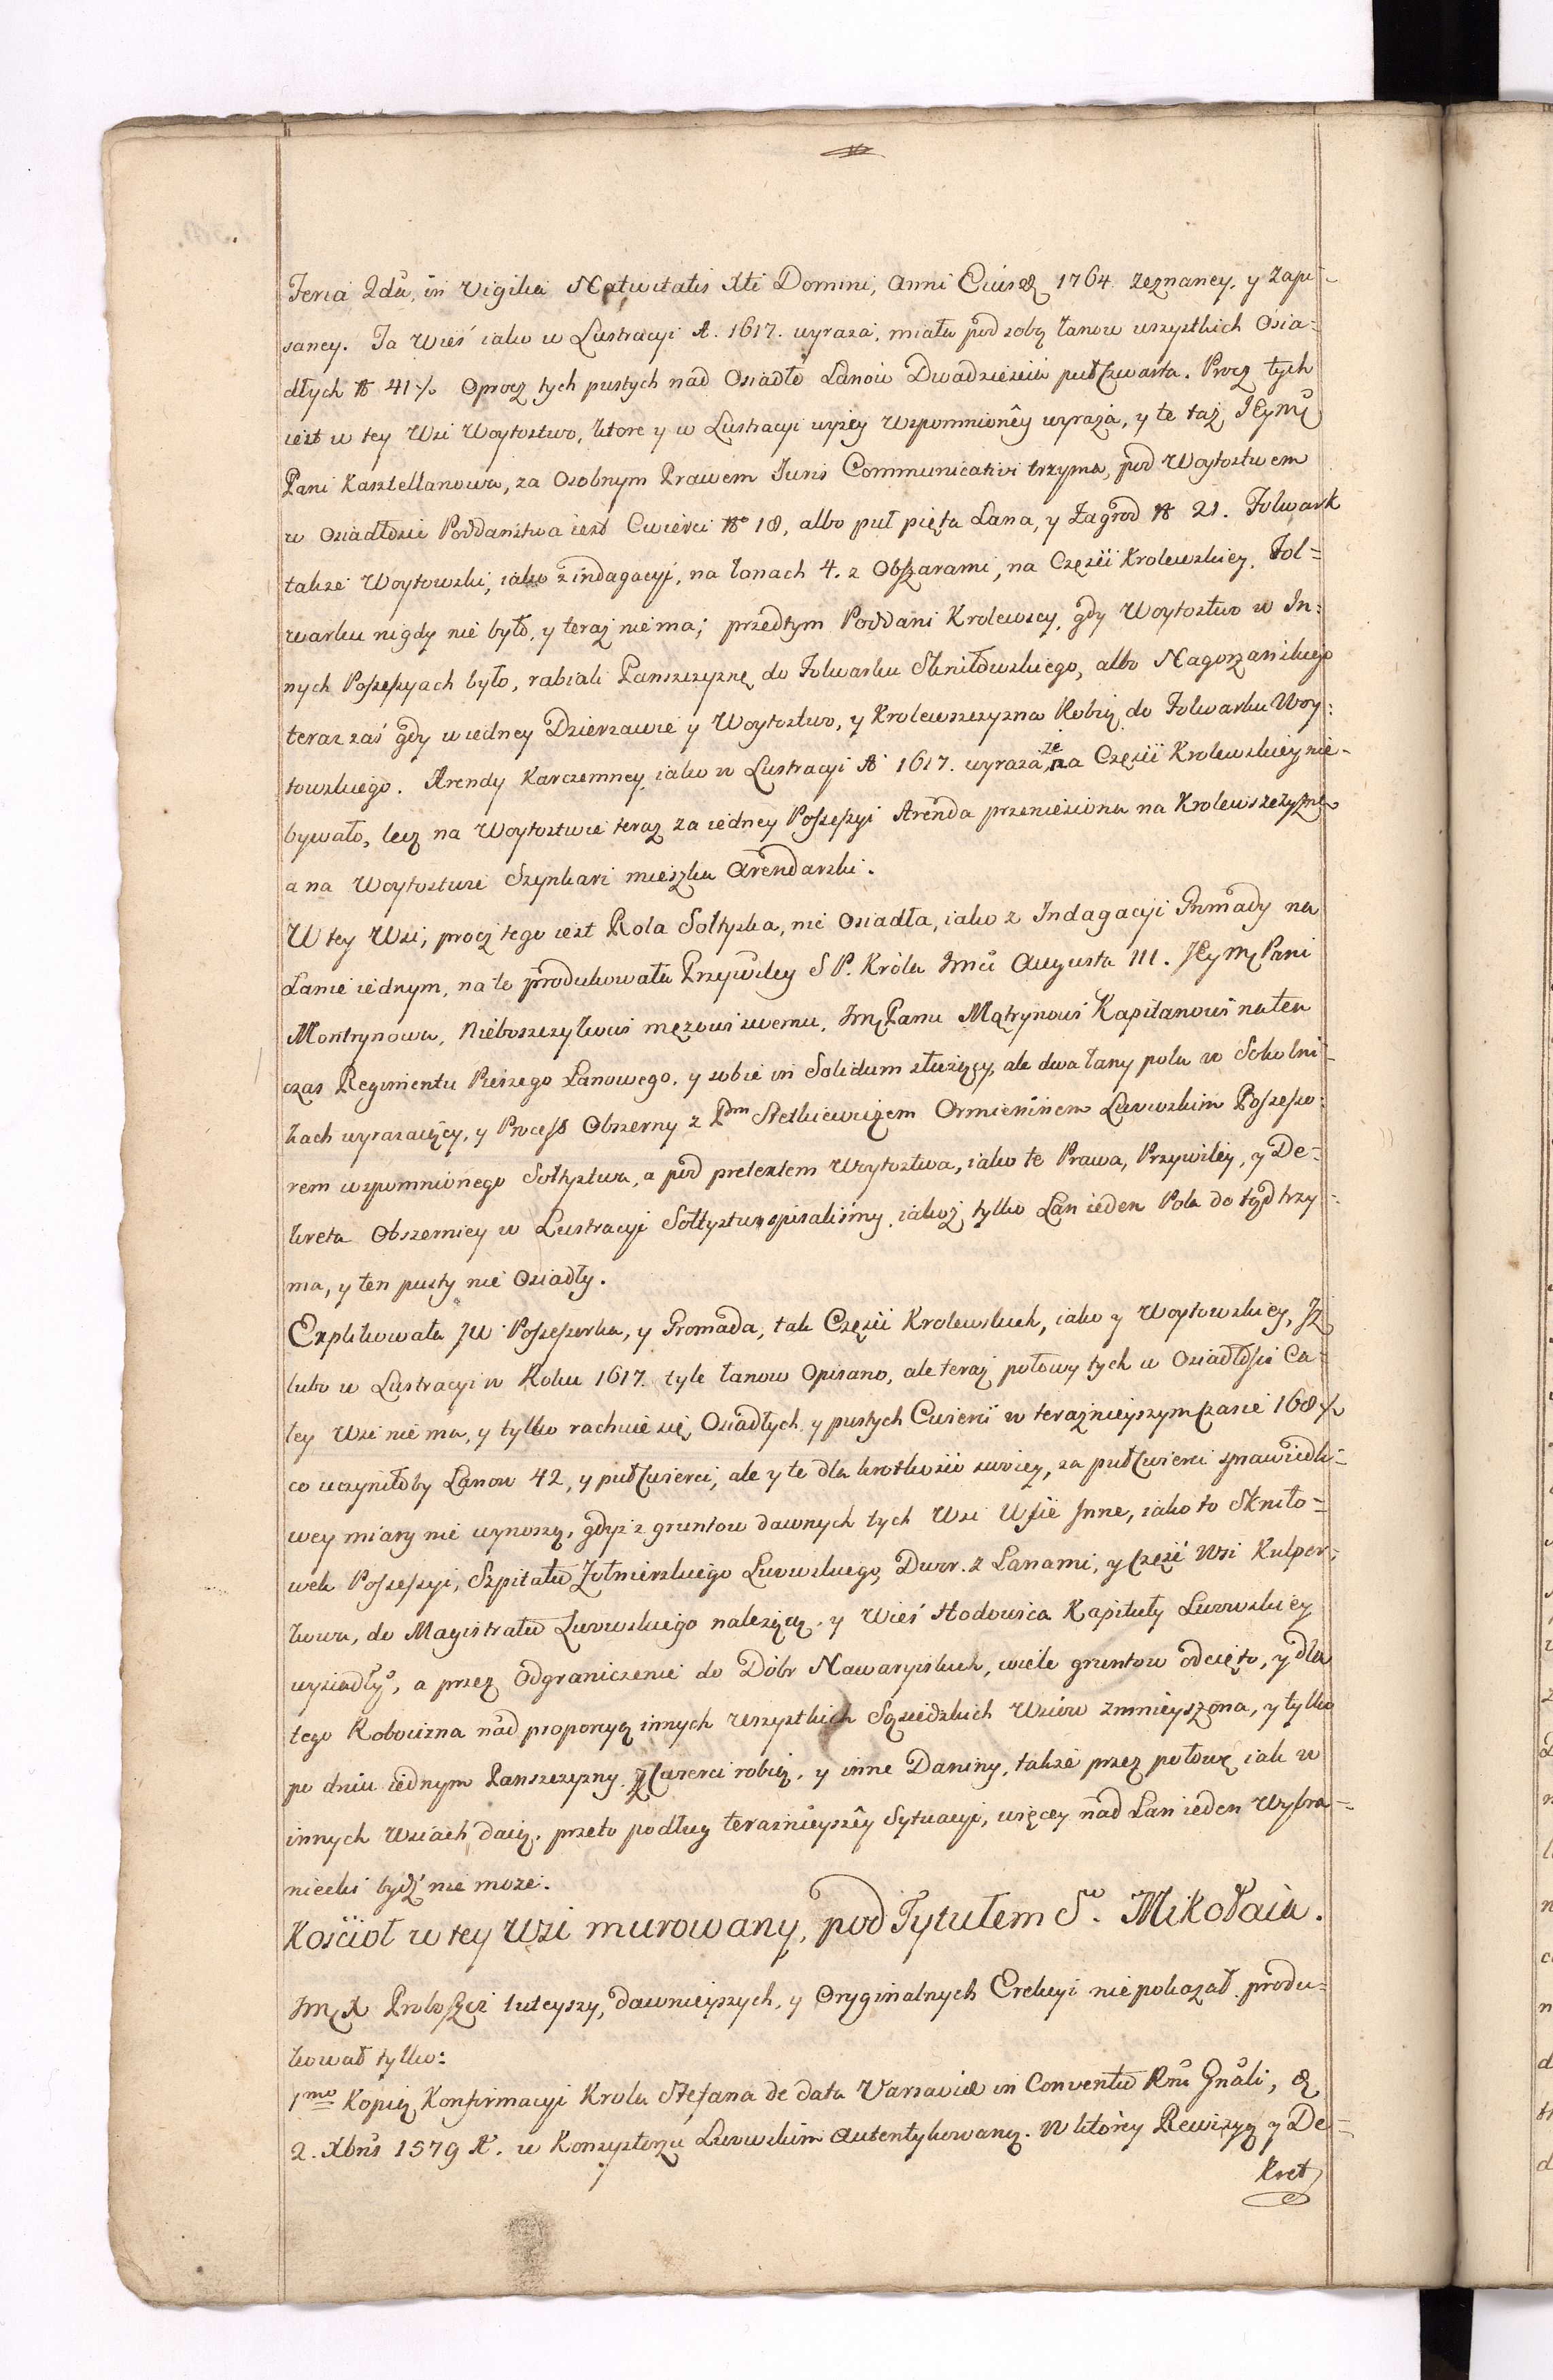 Feria 2da, in Vigilia Nativitatis Xti Domini, Anni Eiusd 1764. zeznaney, y zapi=
saney. Ta Wieś iako w Lustracyi A. 1617. wyraza, miała pod sobą łanow wszystkich Osia=
dłych No 41 ½ Oprocz tych pustych nad Osiadło Łanow Dwadzieścia puł czwarta. Procz tych
iest w tey Wsi Woytostwo, ktore y w Lustracyi wyżey wspomnioney wyraża, y te taż JEymć
Pani Kasztellanowa, za Osobnym Prawem Juris Communicativi trzyma, pod Woytostwem
w Osiadłosci Poddaństwa iest Cwierci No 18, albo puł pięta Łana, y Zagrod No 21. Folwark
także Woytowski, iako z indagacyi, na łanach 4. z Obszarami, na Części Krolewskiey. Fol=
warku nigdy nie było, y teraz nie ma; przedtym Poddani Krolewscy, gdy Woytostwo w In=
nych Possessyach było, rabiali Panszczyznę do Folwarku Skniłowskiego, albo Nagorzanskiego
teraz zaś gdy w iedney Dzierzawie y Woytostwo, y Krolewszczyzna Robią do Folwarku Woy=
towskiego. Arendy Karczemney iako w Lustracyi A 1617. wyraza że na Części Krolewskiey nie=
bywało, lecz na Woytostwie teraz za iedney Possessyi Arenda przeniesiona na Krolewszczyznę
a na Woytostwie Szynkarz mieszka Arendarski.
W tey Wsi, procz tego iest Rola Sołtyska, nie Osiadła, iako z Indagacyi Gromady na
Łanie iednym, na te produkowała Przywiley S P. Króla Jmci Augusta III. JEymć Pani
Montrynowa, Nieboszczykowi mężowi swemu, Jmć Panu Mątrynowi Kapitanowi na ten
czas Regimentu Pieszego Łanowego, y sobie in Solidum służący, ale dwa łany pola w Sokolni=
kach wyrazaiący, y Process Obszerny z Pdm Stetkiewiczem Ormieninem Lwowskim Possesso=
rem wspomnionego Sołtystwa, a pod pretextem Woytostwa, iako te Prawa, Przywiley, y De=
kreta Obszerniey w Lustracyi Sołtystwa opisaliśmy, iakoż tylko Łan ieden Pola do tąd trzy=
ma, y ten pusty nie Osiadły.
Explikowała JW Possessorka, y Gromada, tak Części Krolewskich, iako y Woytowskiey, Jż
lubo w Lustracyi w Roku 1617. tyle łanow Opisano, ale teraz połowy tych w Osiadłości Ca=
łey Wsi nie ma, y tylko rachuie się, Osiadłych y pustych Cwierci w teraźnieyszym czasie 168 ½
co uczyniłoby Łanow 42, y puł Cwierci, ale y te dla krotkosci swoiey, za puł Cwierci sprawiedli=
wey miary nie wynoszą, gdyż z gruntow dawnych tych Wsi Wsie Inne, iako to Skniło=
wek Possessyi, Szpitału Żołnierskiego Lwowskiego, Dwor. z Łanami, y część Wsi Kulper=
kowa, do Magistratu Lwowskiego należącą, y Wieś Hodowica Kapituły Lwowskiey
wysiadły, a przez Odgraniczenie do Dóbr Nawaryiskich, wiele gruntow odcięto, y dla
tego Robocizna nad proporcyą innych wszystkich Sąsiedzkich Wsiów zmnieyszona, y tylko
po dniu iednym Panszczyzny z Cwierci robią, y inne Daniny, także przez połowę iak w
innych Wsiach daią, przeto podług teraźnieyszey Sytuacyi, więcey nad Łan ieden Wybra=
niecki bydź nie może.
Kościoł w tey Wsi murowany, pod Tytułem So. Mikołaia.
Jmć X Proboszcz tuteyszy, dawnieyszych, y Oryginalnych Erekcyi nie pokazał, produ=
kował tylko:
1mo Kopią Konfirmacyi Krola Stefana de data Varsaviæ in Conventu Rni Gnali, d
2. Xbris 1579 A. w Konsystorzu Lwowskim autentykowaną. W ktorey Rewizyą y De=
kret